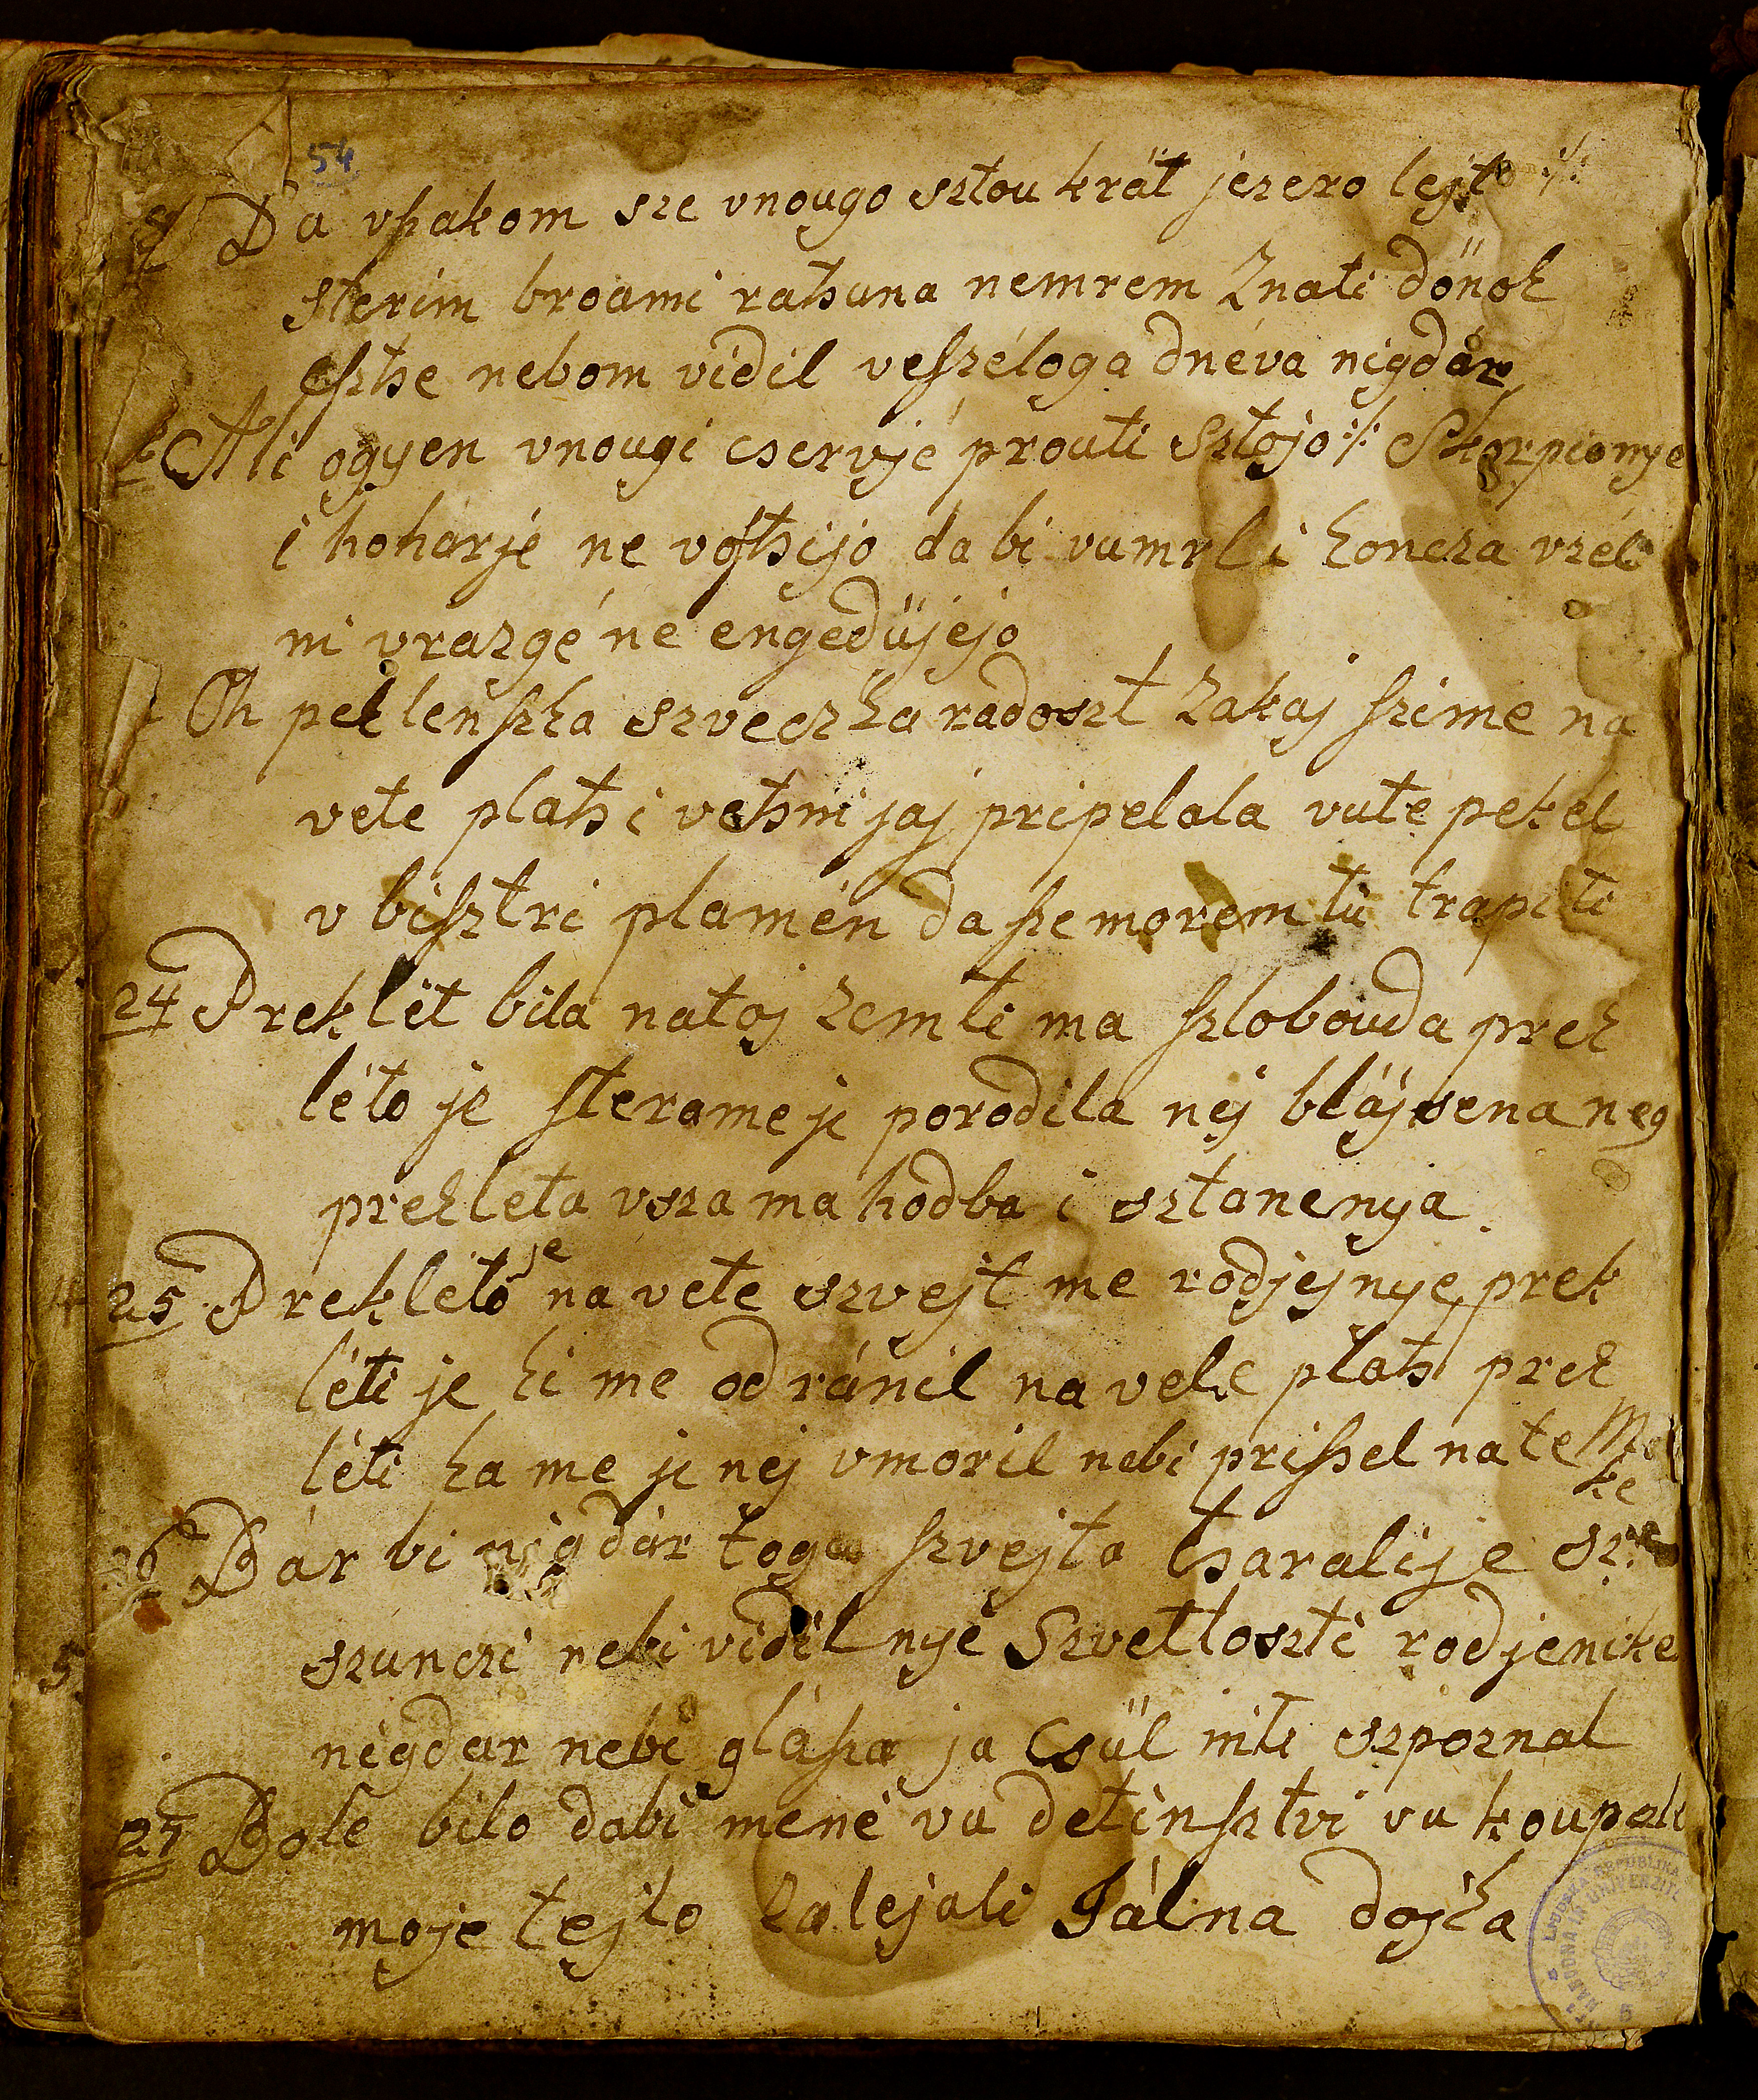 54
Da vſakom sze vnougo sztou krát jezero lejt :/:
sterim broami rathuna nemrem Znati dönok
esthe nebom vidil veſzéloga dnéva nigdár
Ali ogyen vnougi cservjé prouti Sztojo :/: Skorpionye
i hoharjé ne vöſthijo da bi vumrli koncza vzéli
ni vrazgé ne engedüjejo
Oh peklenſzka szveczka radoszt Zakaj ſzi me na
vete plath i vethni jaj pripelala vute pekel
v biſztri plamén da ſze morem tü trapiti
24 Preklét bila natoj Zemli ma ſzlobouda prek
léto je ſterame je porodila nej blájsena neg
prekleta vsza ma hodba i sztanenya
25 Prekléto je na vete szvejt me rodjejnye prek
léti je ki me odránil na vete plath prek
léti ka me je nej vmoril nebi priſsel na te Mo
ke
26 Bár bi nigdár toga ſzvejta tharalije
szunczi nebi vidil nyé Szvetloszti rodjenike
nigdar nebi gláſza ja Csül niti szpoznal
27 Bole bilo dabi mené vu detinſztvi vu koupeli
moje tejlo Zalejali Jálna dojka